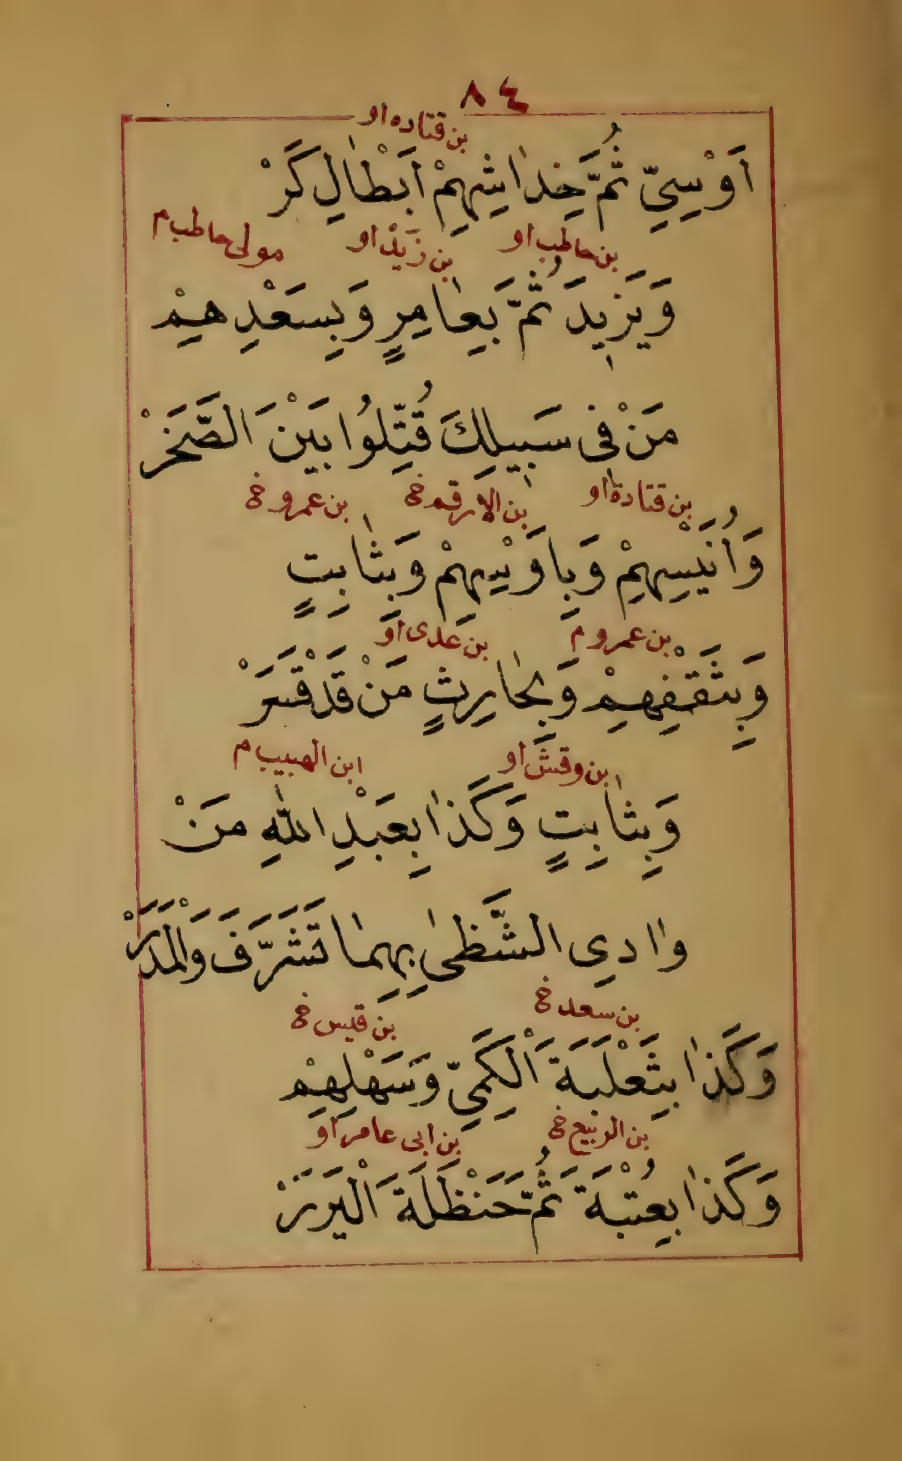 ٨٤
بن قتاده او
اَوْسِيِّ ثُمَّ خِدٰاشِهِمْ اَبْطَالِ كَرّْ
بن حاطب او بن زَيْد او مولى حاطب م
وَيَزِيدَ ثُمَّ بِعٰامِرٍ وَبِسَعْدِهِمْ
مَنْ فِى سَبِيلِكَ قُتِّلُوا بَيْنَ الصَّخَرْ
بن قتادة او بن الارقم خ بن عمرو خ
وَاُنَيْسِهِمْ وَبِاَوْسِهِمْ وَبِثٰابِتٍ
بن عمرو م بن عدى او
وَبِثَقْفِهِمْ وَبِحٰارِثٍ مَنْ قَدْ قَسَرْ
بن وقش او ابن الهبيب م
وَبِثٰابِتٍ وَكَذٰا بِعَبْدِ اللّٰهِ مَنْ
وٰادِى الشَّظٰى بِهِمٰا تَشَرَّفَ وَالْمَدَرْ
بن سعد خ بن قيس خ
وَكَذٰا بِثَعْلَبَةَ الْكَمِىِّ وَسَهْلِهِمْ
بن الربيع خ بن ابى عامر او
وَكَذٰا بِعُتْبَةَ ثُمَّ حَنْظَلَةَ الْيَزَرْ